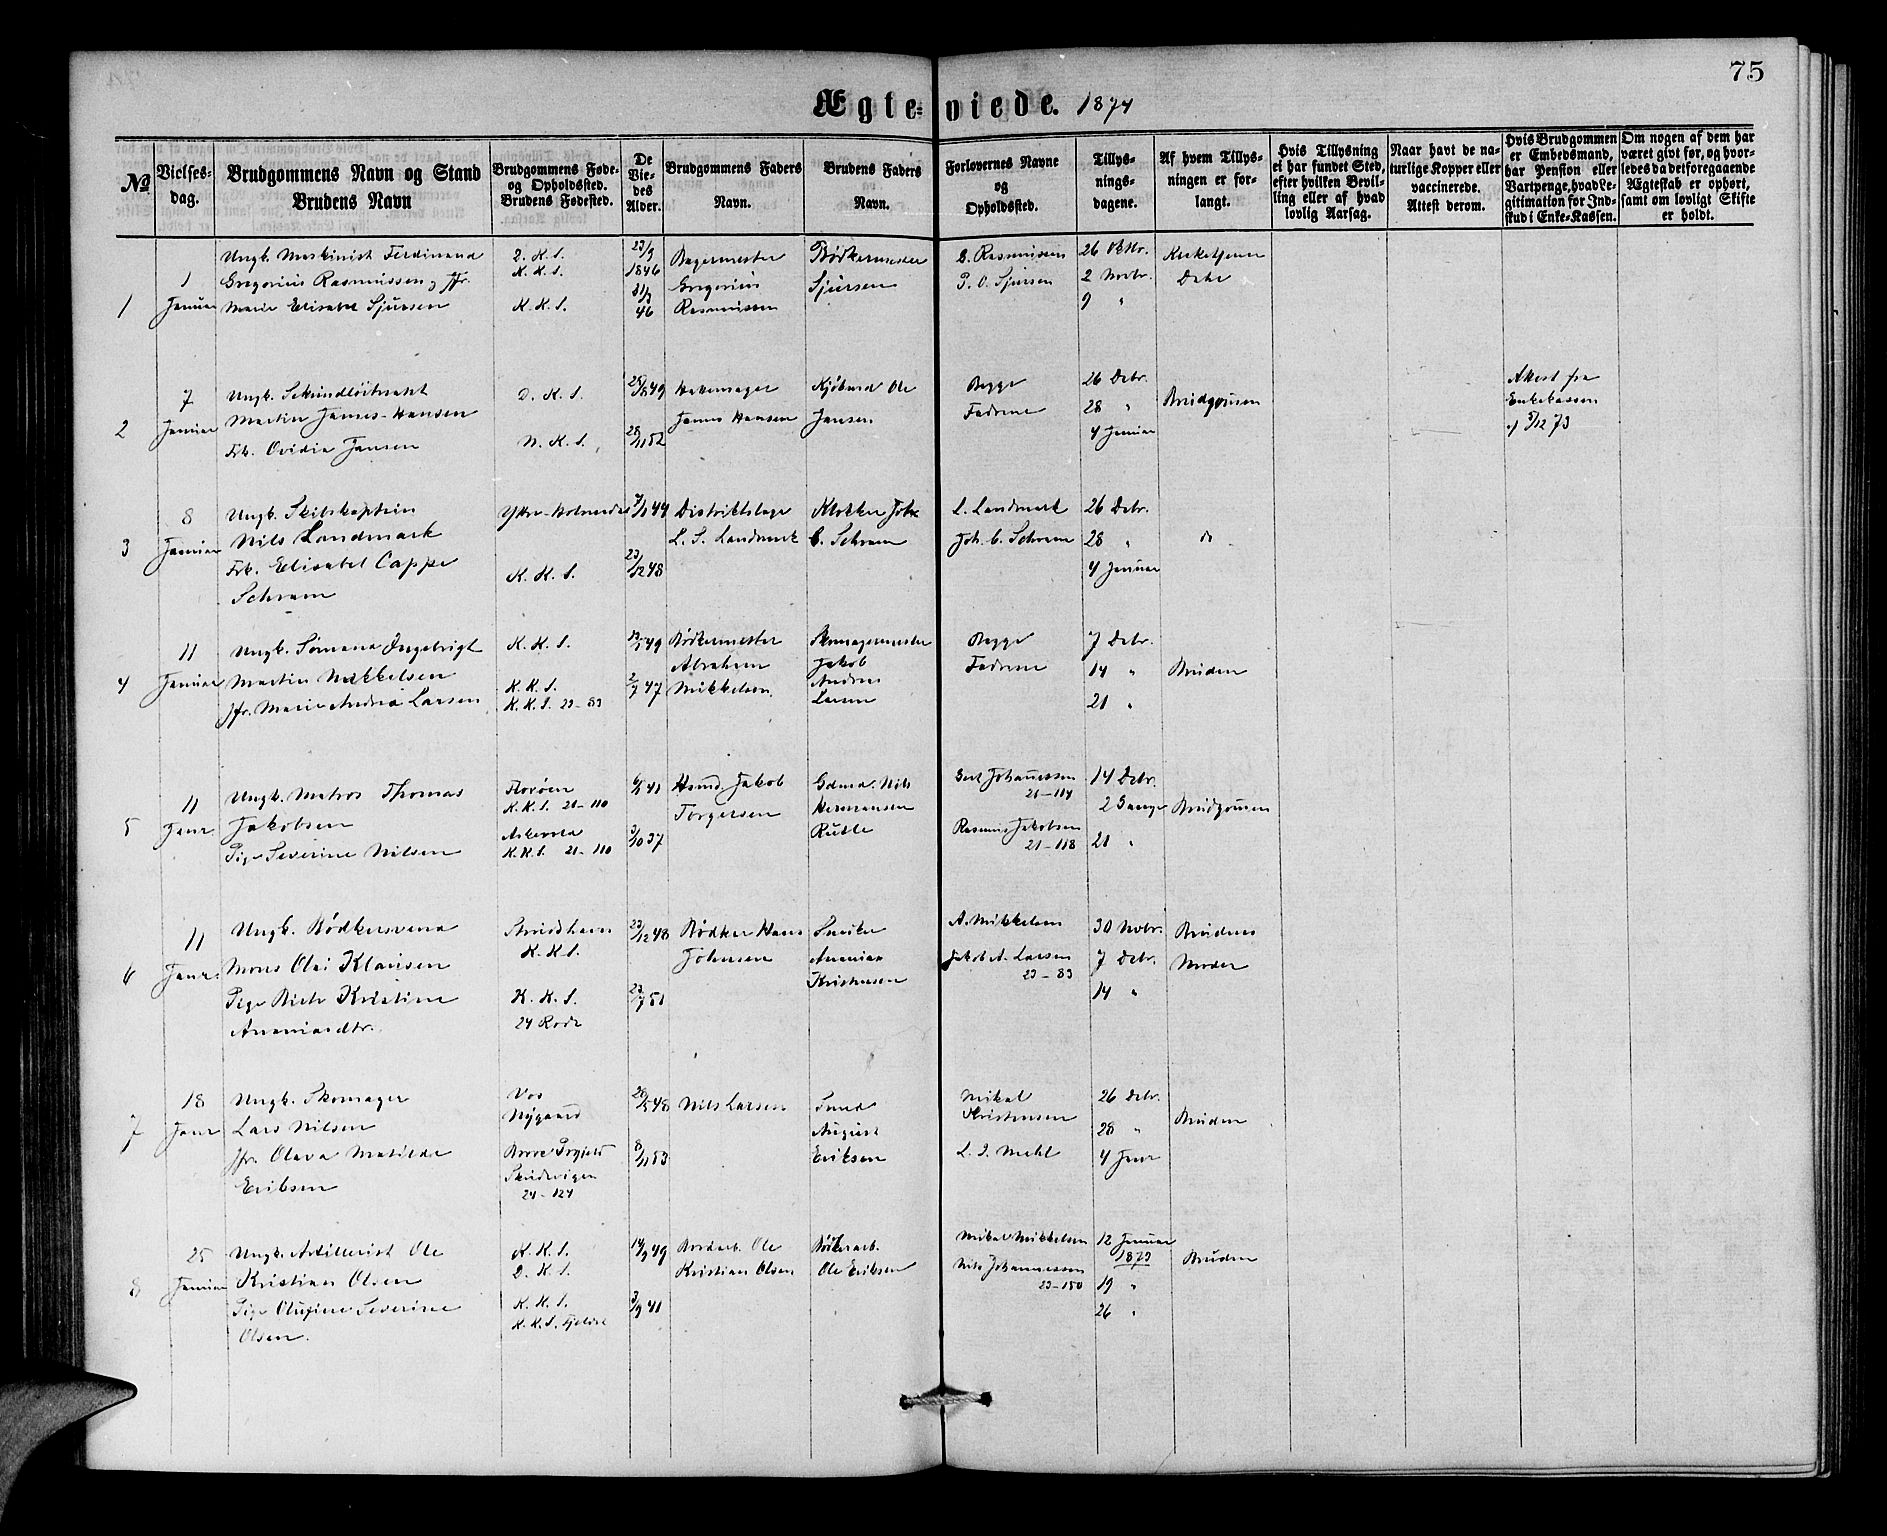 75
Ægte-viede. 1874
No
Vielses-dag.
Brudgommens Navn og Stand
Brudens Navn
Brudgommens Føde- og Opholdssted.
Brudens Fødested.
De Viedes Alder.
Brudgommens Faders Navn.
Brudens Faders Navn.
Forlovernes Navne og Opholdssted.
Tillysningsdagene.
Af hvem Tillysningen er forlangt.
Hvis Tillysning ei har fundet Sted, efter hvilken Bevilling eller af hvad lovlig Aarsag.
Naar havt de naturlige Kopper eller vaccinerede. Attest derom.
Hvis Brudgommen er Embedsmand, har Pension eller Vartpenge, hvad Legitimation for Indskud i Enke-Kassen.
Om nogen af dem har været givt før, og hvorledes da det foregaaende Ægteskab er ophørt, samt om lovligt Skifte er holdt.
1
1 Januar
Ungk. Maskinist Ferdinand
Gregorius Rasmussen, Jfr.
Marie Elisabet Sjursen
D. K. S.
K. K. S.
K. K. S.
23/9 1846
46
Bagermester
Gregorius
Rasmussen
Bødkermester
Sjursen
G. Rasmussen
P. O. Sjursen
26 Oktbr.
2 Novbr.
9 "
Kirketjener
Dahl
2
7 Januar
Ungk. Sekundløitnant
Martin James Hansen
Frk. Ovidia Jansen
D. K. S.
N. K. S.
49
28/11 52
Hattemager
James Hansen
Kjøbmd Ole
Jansen
Begge
Fædrene
26 Debr.
28 "
4 Januar
Brudgommen
Attest fra
Enkekassen
3/12 73
3
8 Januar
Ungk. Skibskaptein
Nils Landmark
Frk. Elisabet Cappe
Schram
Ytre-Holmedal
K. K. S.
44
23/12 48
Distriktslæge
L. S. Landmark
Klokker Joh.
C. Schram
L. Landmark
Joh. C. Schram
26 Debr.
28 "
4 Januar
do
4
11 Januar
Ungk. Sømand Ingebrigt
Martin Mikkelsen
Jfr. Marie Andrea Larsen
K. K. S.
K. K. S.
K. K. S. 23-83
49
2/7 47
Bødkermester
Abraham
Mikkelsen
Skomagermester
Jakob
Andreas
Larsen
Begge
Fædrene
7 Debr.
14 "
21 "
Bruden
5
11 Janr.
Ungk. Matros Thomas
Jakobsen
Pige Severine Nilsen
Florøen
K. K. S. 21-110
Askevold
K. K. S. 21-110
41
3/10 37
Husmd Jakob
Torgersen
Gdmd. Nils
Hermansen
Johannessen
21-114
Rasmus Jakobsen
21-118
14 Debr.
2 Gange
21 "
Brudgommen
6
11 Janr.
Ungk. Bødkersvend
Mons Olai Klausen
Pige Birte Kristine
Ananiasdtr.
K. K. S.
K. K. S.
24 Rode
23/12 48
23/7 51
Bødker Hans
Johnsen
Snedker
Ananias
Kristensen
A. Mikkelsen
Jakob A. Larsen
23-83
30 Novbr.
7 Debr.
14 "
Brudens
Moder
7
18 Janr
Ungk. Skomager
Lars Nilsen
Jfr. Olava Matilde
Eriksen
Vos
Nygaard
Borre Prgjeld
Skudevigen
24-124
48
8/11 53
Nils Larsen
Smed
August
Eriksen
Mikal
Kristensen
L. J. Mehl
26 Debr.
28 "
4 Janr
Bruden
8
25 Januar
Ungk. Artillerist Ole
Kristian Olsen
Pige Olufine Severine
Olsen.
K. K. S.
D. K. S.
K. K. S.
K. K. S.
14/9 49
3/9 41
Bordarb. Ole
Kristian Olsen
Ole Eriksen
Mikal Mikkelsen
Nils Johannessen
23-150
12 Januar
1873
19 "
26 "
Bruden